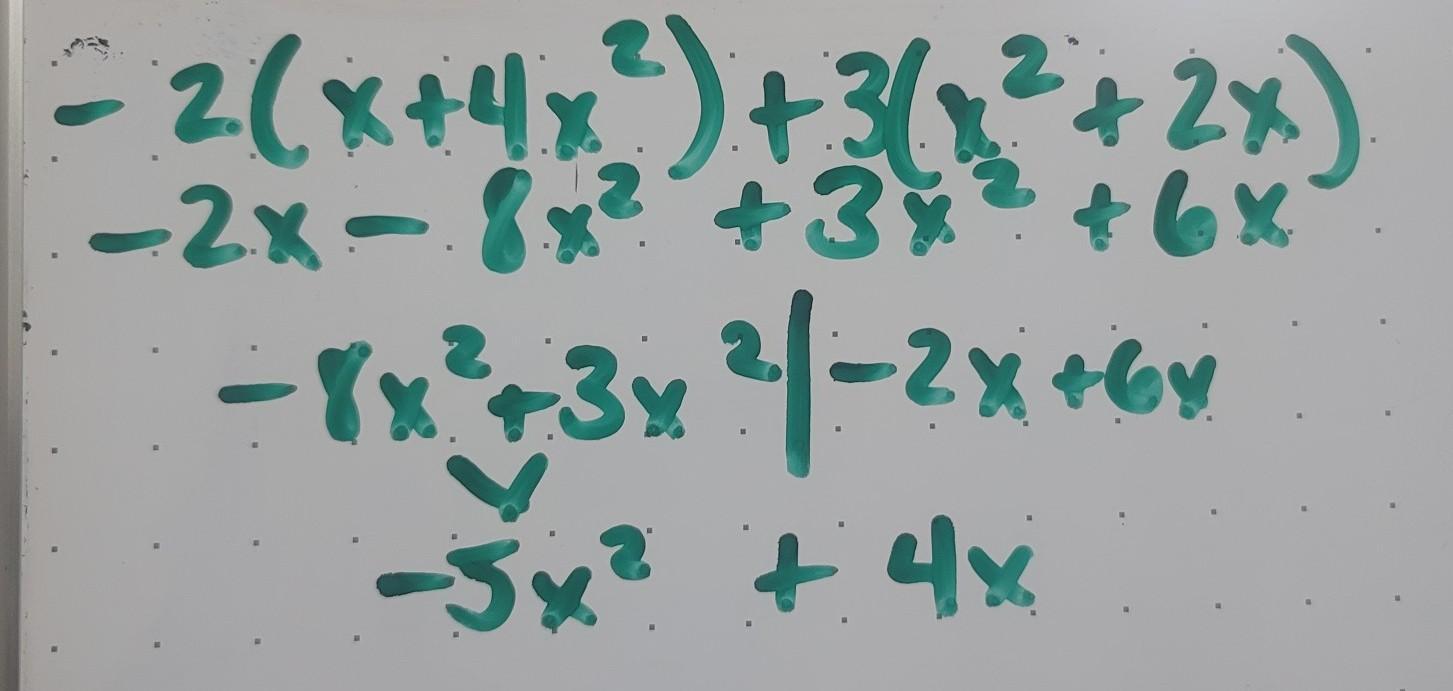 -2(x+4x²)+3(x²+2x)
-2x-8x²+3x²+6x
-8x²+3x²|-2x+6x
-5x²+4x